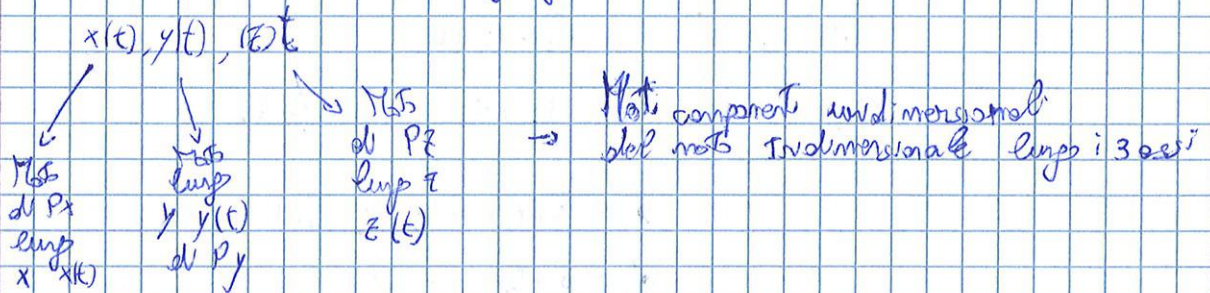 x(t), y(t), (z)t
Moto
di Px
lungo
x x(t)
Moto
lungo
y y(t)
di Py
Moto
di Pz
lungo z
z(t)
→ Moti componenti unidimensionali
del moto tridimensionale lungo i 3 assi